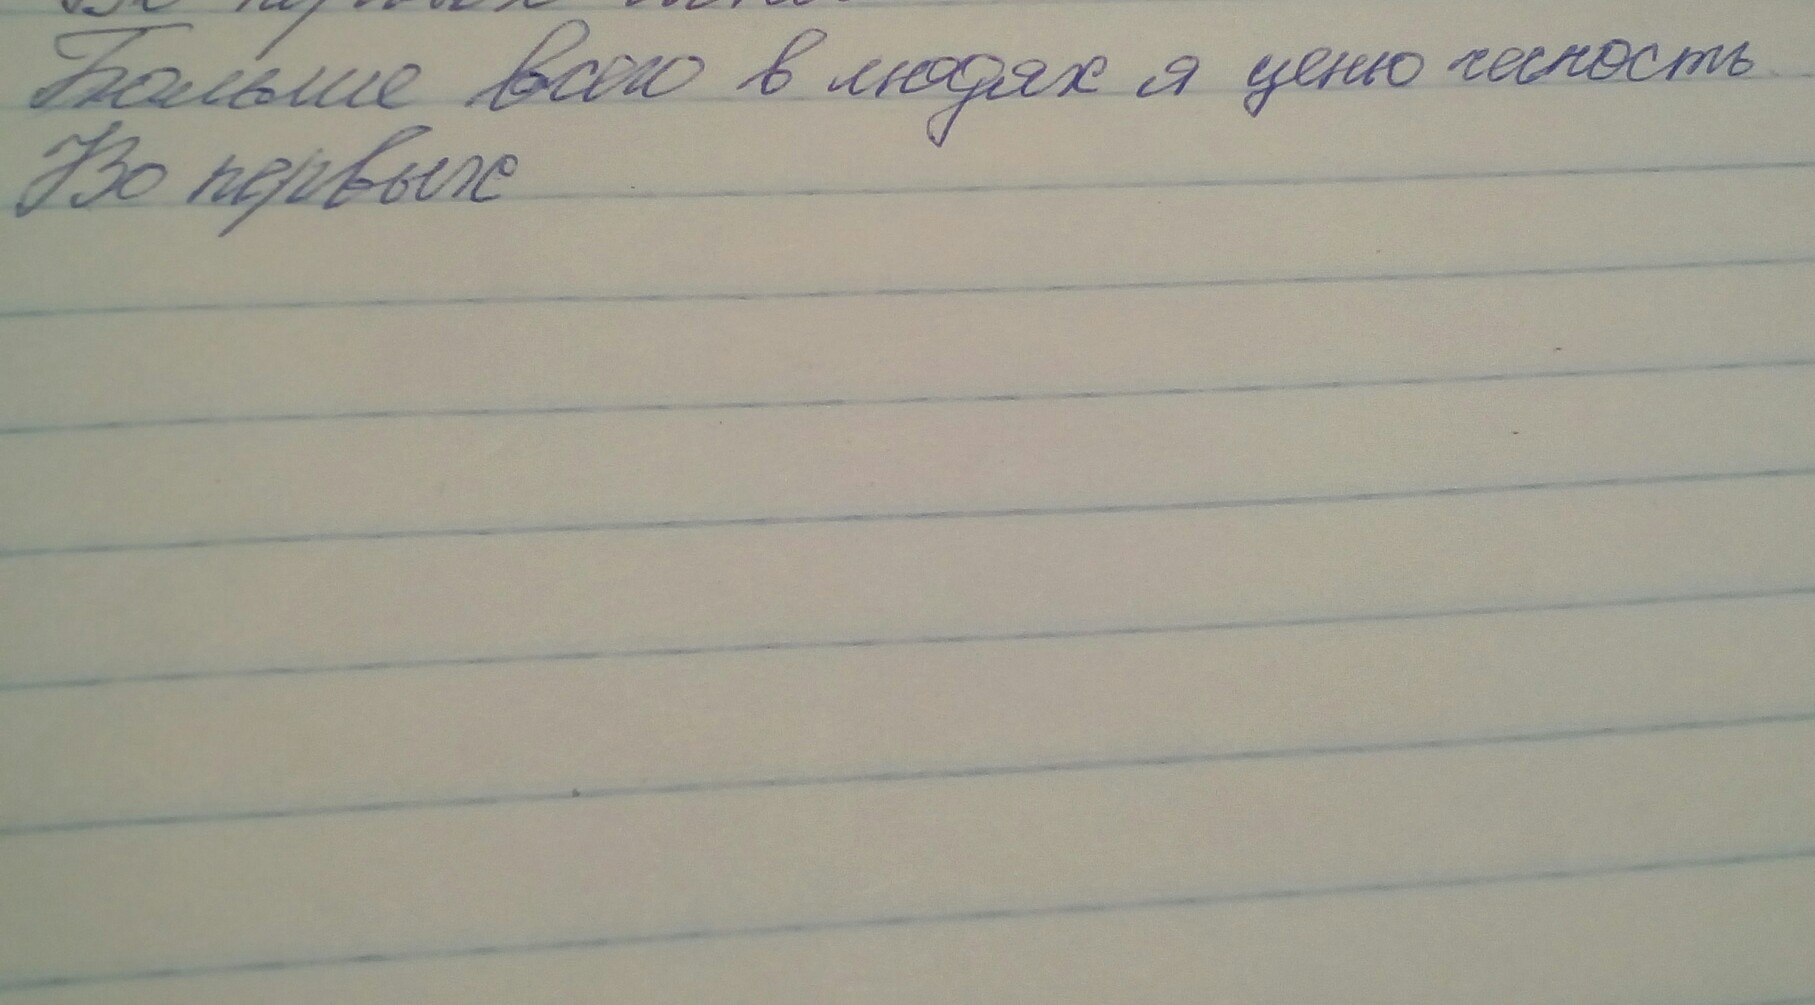 Больше всего в людях я ценю чесность
Во первых